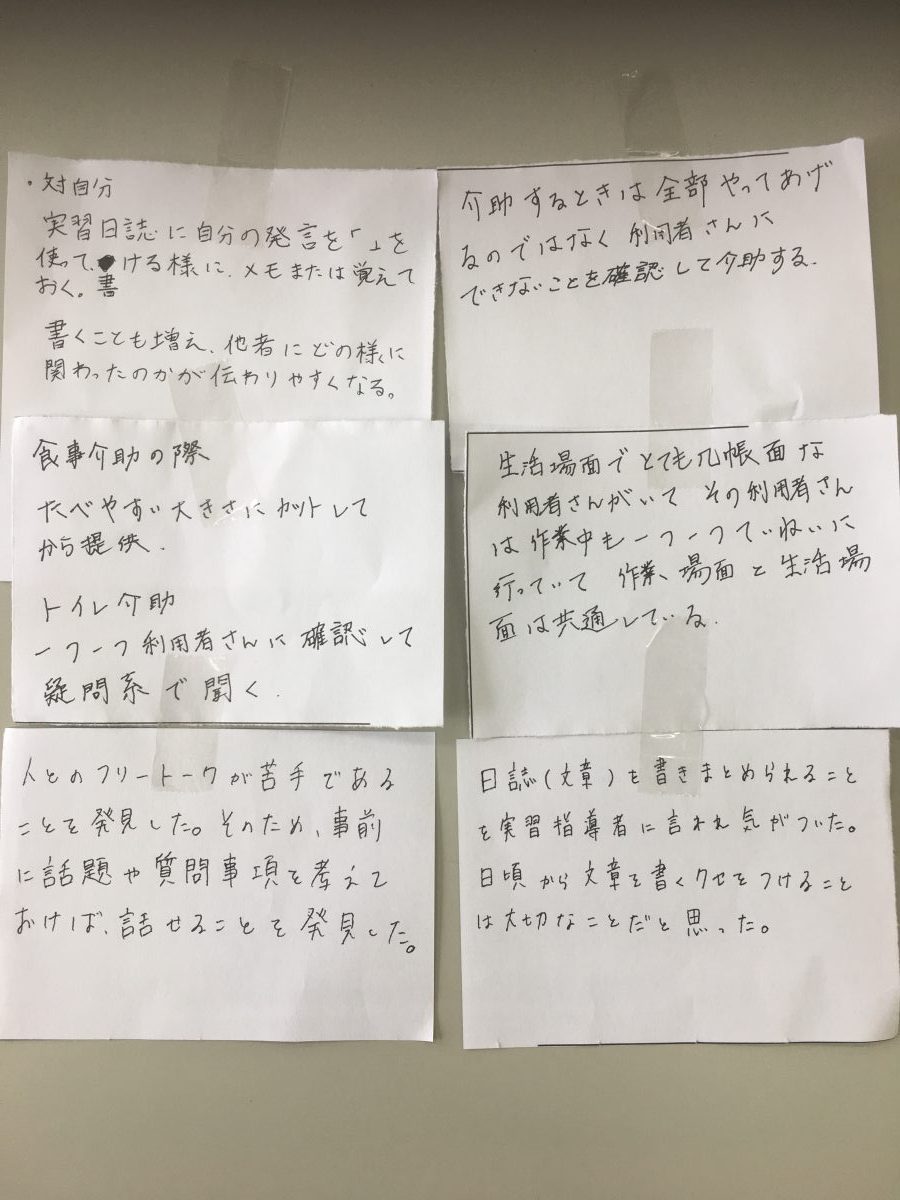 ・対自分
実習日誌に自分の発言を「」を
使って、書ける様に、メモまたは覚えて
おく。
書くことも増え、他者にどの様に
関わったのかが伝わりやすくなる。
介助するときは全部やってあげ
るのではなく 利用者さんに
できないことを確認して介助する.
食事介助の際
たべやすい大きさにカットして
から提供.
トイレ介助
一つ一つ利用者さんに確認して
疑問系で聞く.
生活場面でとても几帳面な
利用者さんがいて その利用者さん
は作業中も一つ一つていねいに
行っていて 作業、場面と生活場
面は共通している.
人とのフリートークが苦手である
ことを発見した。そのため、事前
に話題や質問事項を考えて
おけば、話せることを発見した。
日誌(文章)を書きまとめられること
を実習指導者に言われ気がついた。
日頃から文章を書くクセをつけること
は大切なことだと思った。